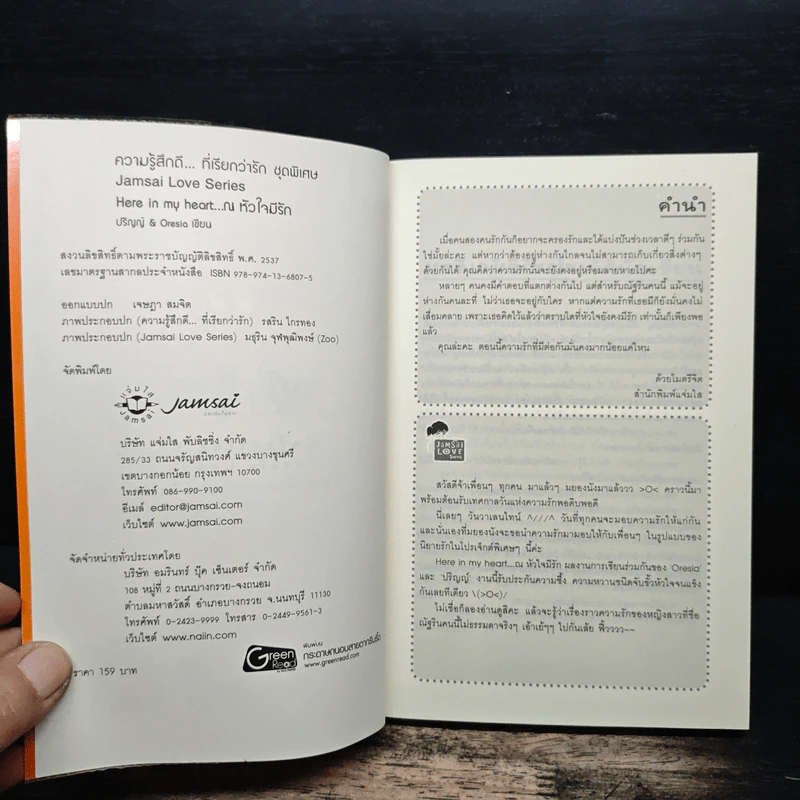 ความรู้สึกดี... ที่เรียกว่ารัก ชุดพิเศษ
Jamsai Love Series
Here in my heart...ณ หัวใจมีรัก
ปริญญ์ & Oresia เขียน
สงวนลิขสิทธิ์ตามพระราชบัญญัติลิขสิทธิ์ พ.ศ. 2537
เลขมาตรฐานสากลประจำหนังสือ ISBN 978-974-13-6807-5
ออกแบบปก เจษฎา สมจิต
ภาพประกอบปก (ความรู้สึกดี... ที่เรียกว่ารัก) รสริน ไกรทอง
ภาพประกอบปก (Jamsai Love Series) มธุริน จุฬพุฒิพงษ์ (Zoo)
จัดพิมพ์โดย
แจ่มใส
Jamsai
Jamsai
บริษัท แจ่มใส พับลิชชิ่ง จำกัด
285/33 ถนนจรัญสนิทวงศ์ แขวงบางขุนศรี
เขตบางกอกน้อย กรุงเทพฯ 10700
โทรศัพท์ 086-990-9100
อีเมล์ editor@jamsai.com
เว็บไซต์ www.jamsai.com
จัดจำหน่ายทั่วประเทศโดย
บริษัท อมรินทร์ บุ๊ค เซ็นเตอร์ จำกัด
108 หมู่ที่ 2 ถนนบางกรวย-จงถนอม
ตำบลมหาสวัสดิ์ อำเภอบางกรวย จ.นนทบุรี 11130
โทรศัพท์ 0-2423-9999 โทรสาร 0-2449-9561-3
เว็บไซต์ www.naiin.com
Green Read
พิมพ์บน
กระดาษถนอมสายตากรีนรี้ด
www.greenread.com
ราคา 159 บาท
คำนำ
เมื่อคนสองคนรักกันก็อยากจะครองรักและได้แบ่งปันช่วงเวลาดีๆ ร่วมกัน
ใช่มั้ยล่ะคะ แต่หากว่าต้องอยู่ห่างกันไกลจนไม่สามารถเก็บเกี่ยวสิ่งต่างๆ
ด้วยกันได้ คุณคิดว่าความรักนั้นจะยังคงอยู่หรือมลายหายไปคะ
หลายๆ คนคงมีคำตอบที่แตกต่างกันไป แต่สำหรับณัฐรินคนนี้ แม้จะอยู่
ห่างกันคนละที่ ไม่ว่าเธอจะอยู่กับใคร หากแต่ความรักที่เธอมีก็ยังมั่นคงไม่
เสื่อมคลาย เพราะเธอคิดไว้แล้วว่าตราบใดที่หัวใจยังคงมีรัก เท่านั้นก็เพียงพอ
แล้ว
คุณล่ะคะ ตอนนี้ความรักที่มีต่อกันมั่นคงมากน้อยแค่ไหน
ด้วยไมตรีจิต
สำนักพิมพ์แจ่มใส
JAMSAI
LOVE
Series
สวัสดีจ้าเพื่อนๆ ทุกคน มาแล้วๆ มยองนังมาแล้วววว >O< คราวนี้มา
พร้อมต้อนรับเทศกาลวันแห่งความรักพอดิบพอดี
นี่เลยๆ วันวาเลนไทน์ ^///^ วันที่ทุกคนจะมอบความรักให้แก่กัน
และนั่นเองที่มยองนังจะขอนำความรักมามอบให้กับเพื่อนๆ ในรูปแบบของ
นิยายรักในโปรเจ็กต์พิเศษๆ นี้ค่ะ
Here in my heart...ณ หัวใจมีรัก ผลงานการเขียนร่วมกันของ 'Oresia'
และ 'ปริญญ์' งานนี้รับประกันความซึ้ง ความหวานชนิดจับขั้วหัวใจจนแข็ง
กันเลยทีเดียว \(>O<)/
ไม่เชื่อก็ลองอ่านดูสิคะ แล้วจะรู้ว่าเรื่องราวความรักของหญิงสาวที่ชื่อ
ณัฐรินคนนี้ไม่ธรรมดาจริงๆ เอ้าเย้ๆๆ ไปกันเล้ย ฟิ้วววว~~